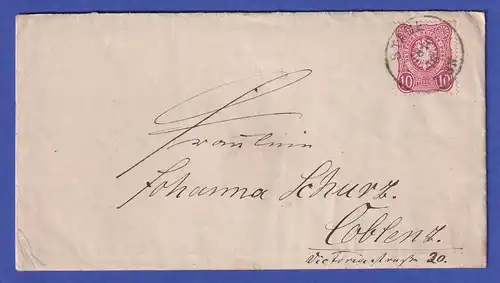 10 10
Fräulein
Johanna Schurz.
Coblenz.
Victoriastraße 20.